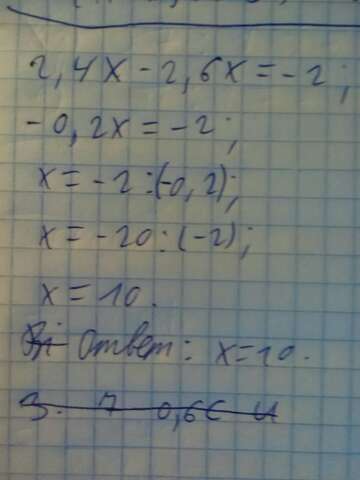 2,4x - 2,6x = -2;
-0,2x = -2;
x = -2:(-0,2);
x = -20:(-2);
x = 10.
Ответ: x=10.
3. 7 0,6